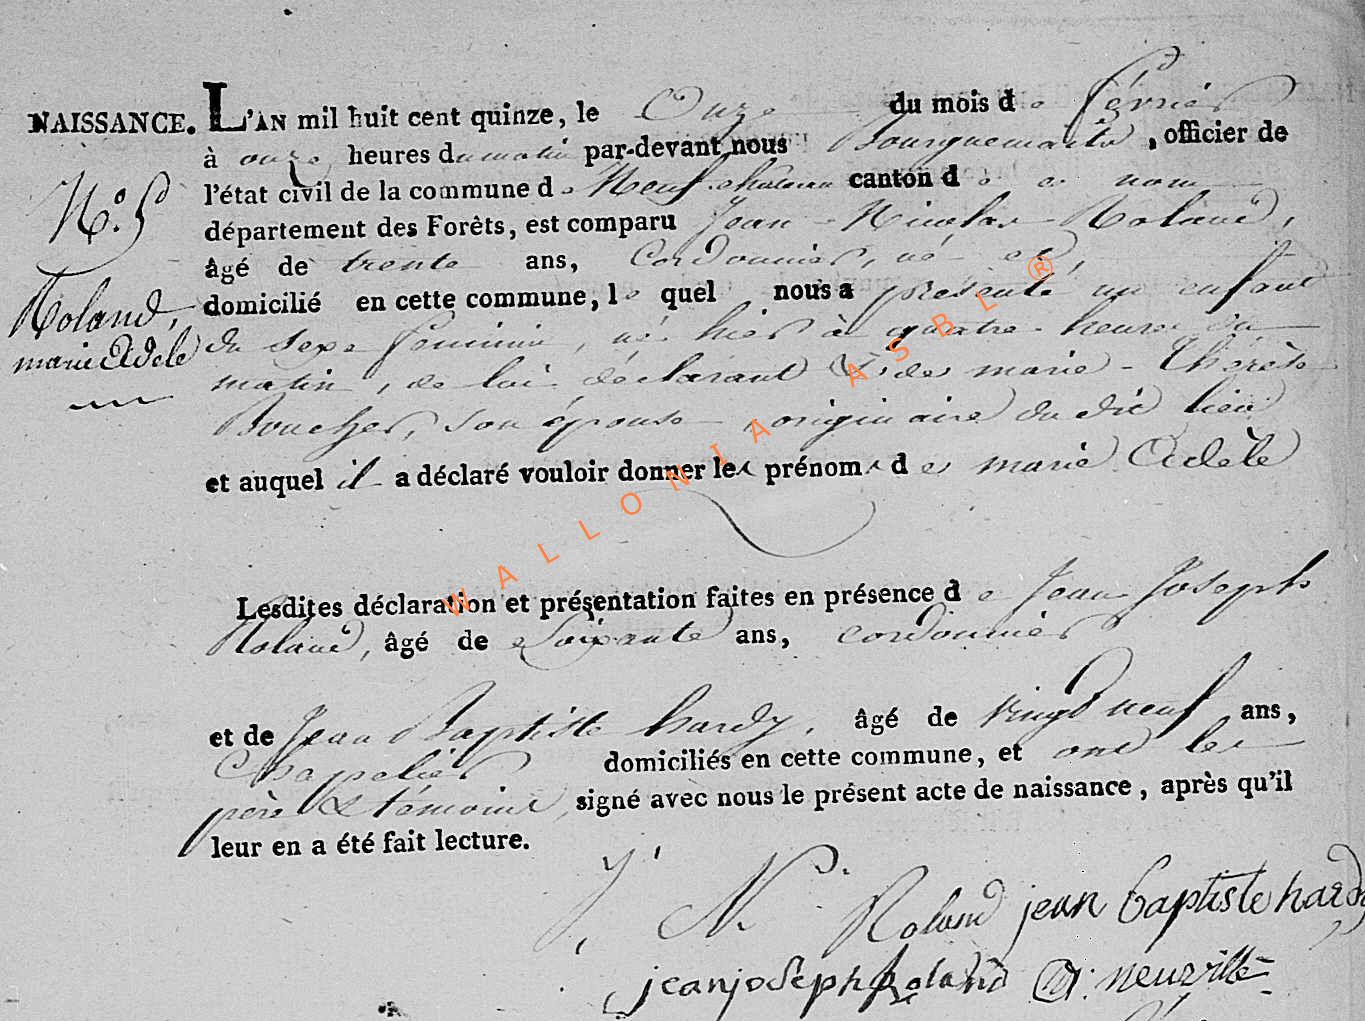 NAISSANCE. L'AN mil huit cent quinze, le Onze du mois de Février
à onze heures du matin par-devant nous Bourguemaitre, officier de
l'état civil de la commune de Neufchateau canton de
N.º 5
département des Forêts, est comparu Jean-Nicolas Roland,
âgé de trente ans, Cordonnier, né
Roland,
domicilié en cette commune, le quel nous a présenté un enfant
marie Adele
du sexe feminin né hier à quatre heures du
matin, de lui déclarant & de marie-Thérèse
Boucher, son épouse, originaire du dit lieu
et auquel il a déclaré vouloir donner les prénoms de marie Adèle
Lesdites déclaration et présentation faites en présence de Jean Joseph
Roland, âgé de Soixante ans, cordonnier
et de Jean Baptiste hardy, âgé de vingt neuf ans,
Chapelier domiciliés en cette commune, et ont les
père & témoins, signé avec nous le présent acte de naissance, après qu'il
leur en a été fait lecture.
J. N. Roland jean baptiste hardy
jean joseph Roland neuville
WALLONIA ASBL ®